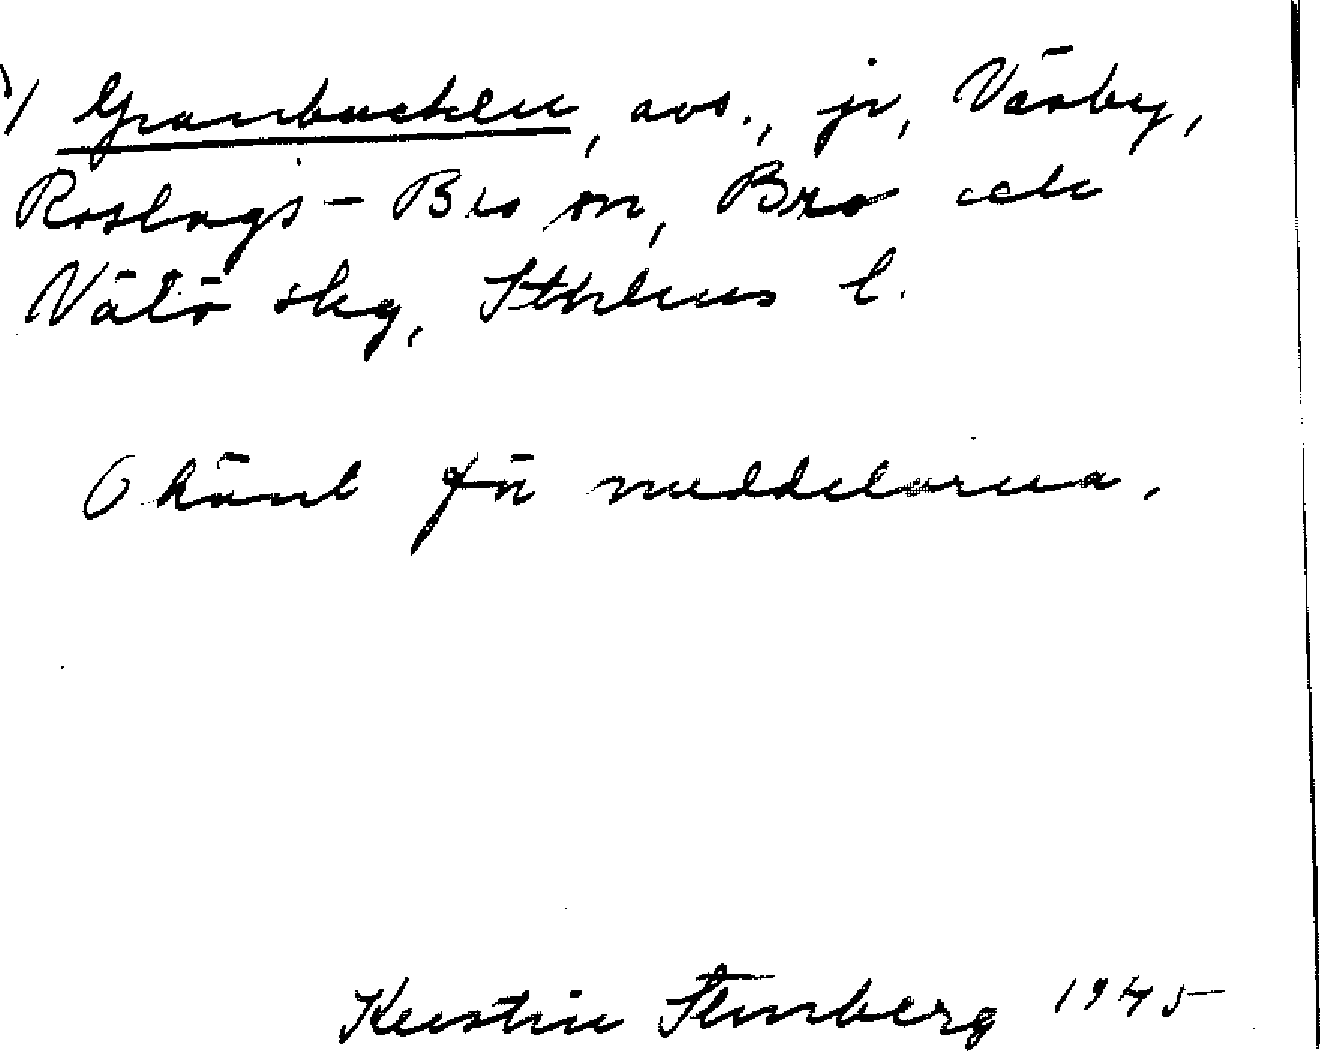 1) Granbacken, avs., jr, Väsby,
Roslags-Bro sn, Bro och
Vätö skg, Sthlms l.
Okänt för meddelarna.
Kerstin Stenberg 1945